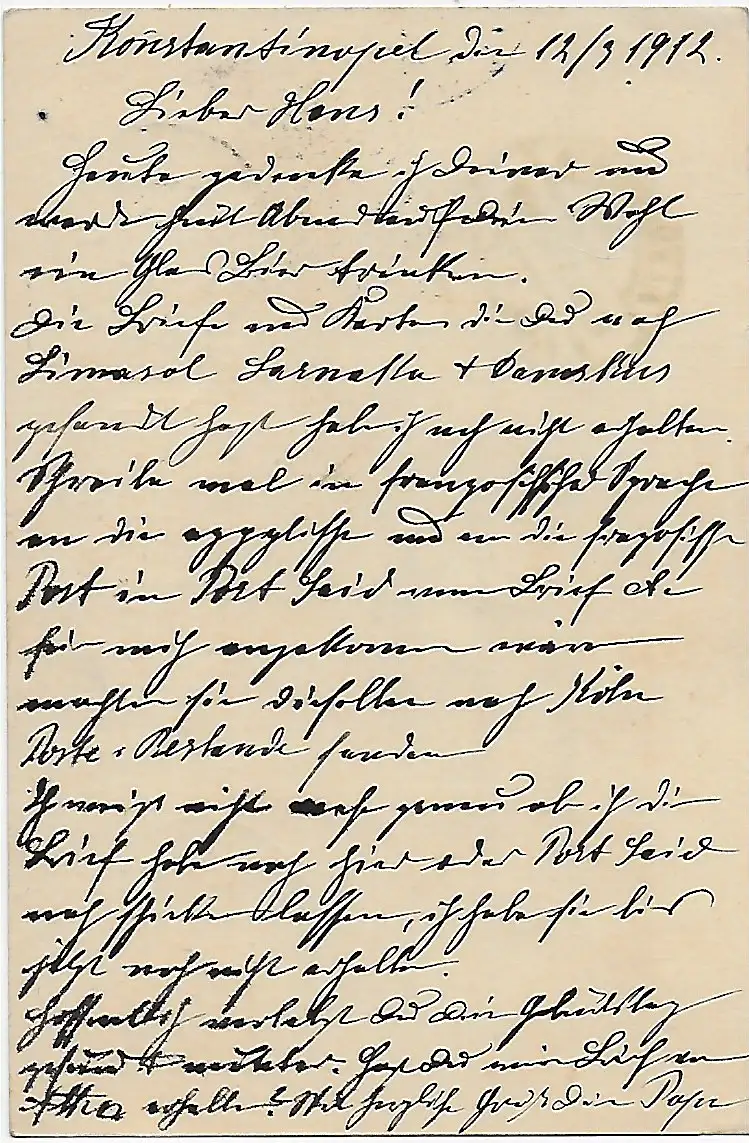 Konstantinopel den 12/3 1912.
Lieber Hans!
Heute gedenke ich Deiner und
werde heut Abend auf Dein Wohl
ein Glas Bier trinken.
Die Briefe und Karten die Du nach
Limasol Larnakka + Damaskus
gesandt hast habe ich noch nicht erhalten.
Schreibe mal in französischer Sprache
an die egyptische und an die französische
Post in Port Said wenn Brief
für mich angekommen wären
möchten sie dieselben nach Köln
Poste-Restande senden
Ich weiß nicht mehr genau ob ich die
Brief habe nach hier oder Port Said
nach schicken lassen, ich habe sie bis
jetzt noch nicht erhalten.
Hoffentlich verlebst Du Dein Geburtstag
gesund + munter. Hast Du mein Buch von
erhalten? Mit herzliche Gruß Dein Papa